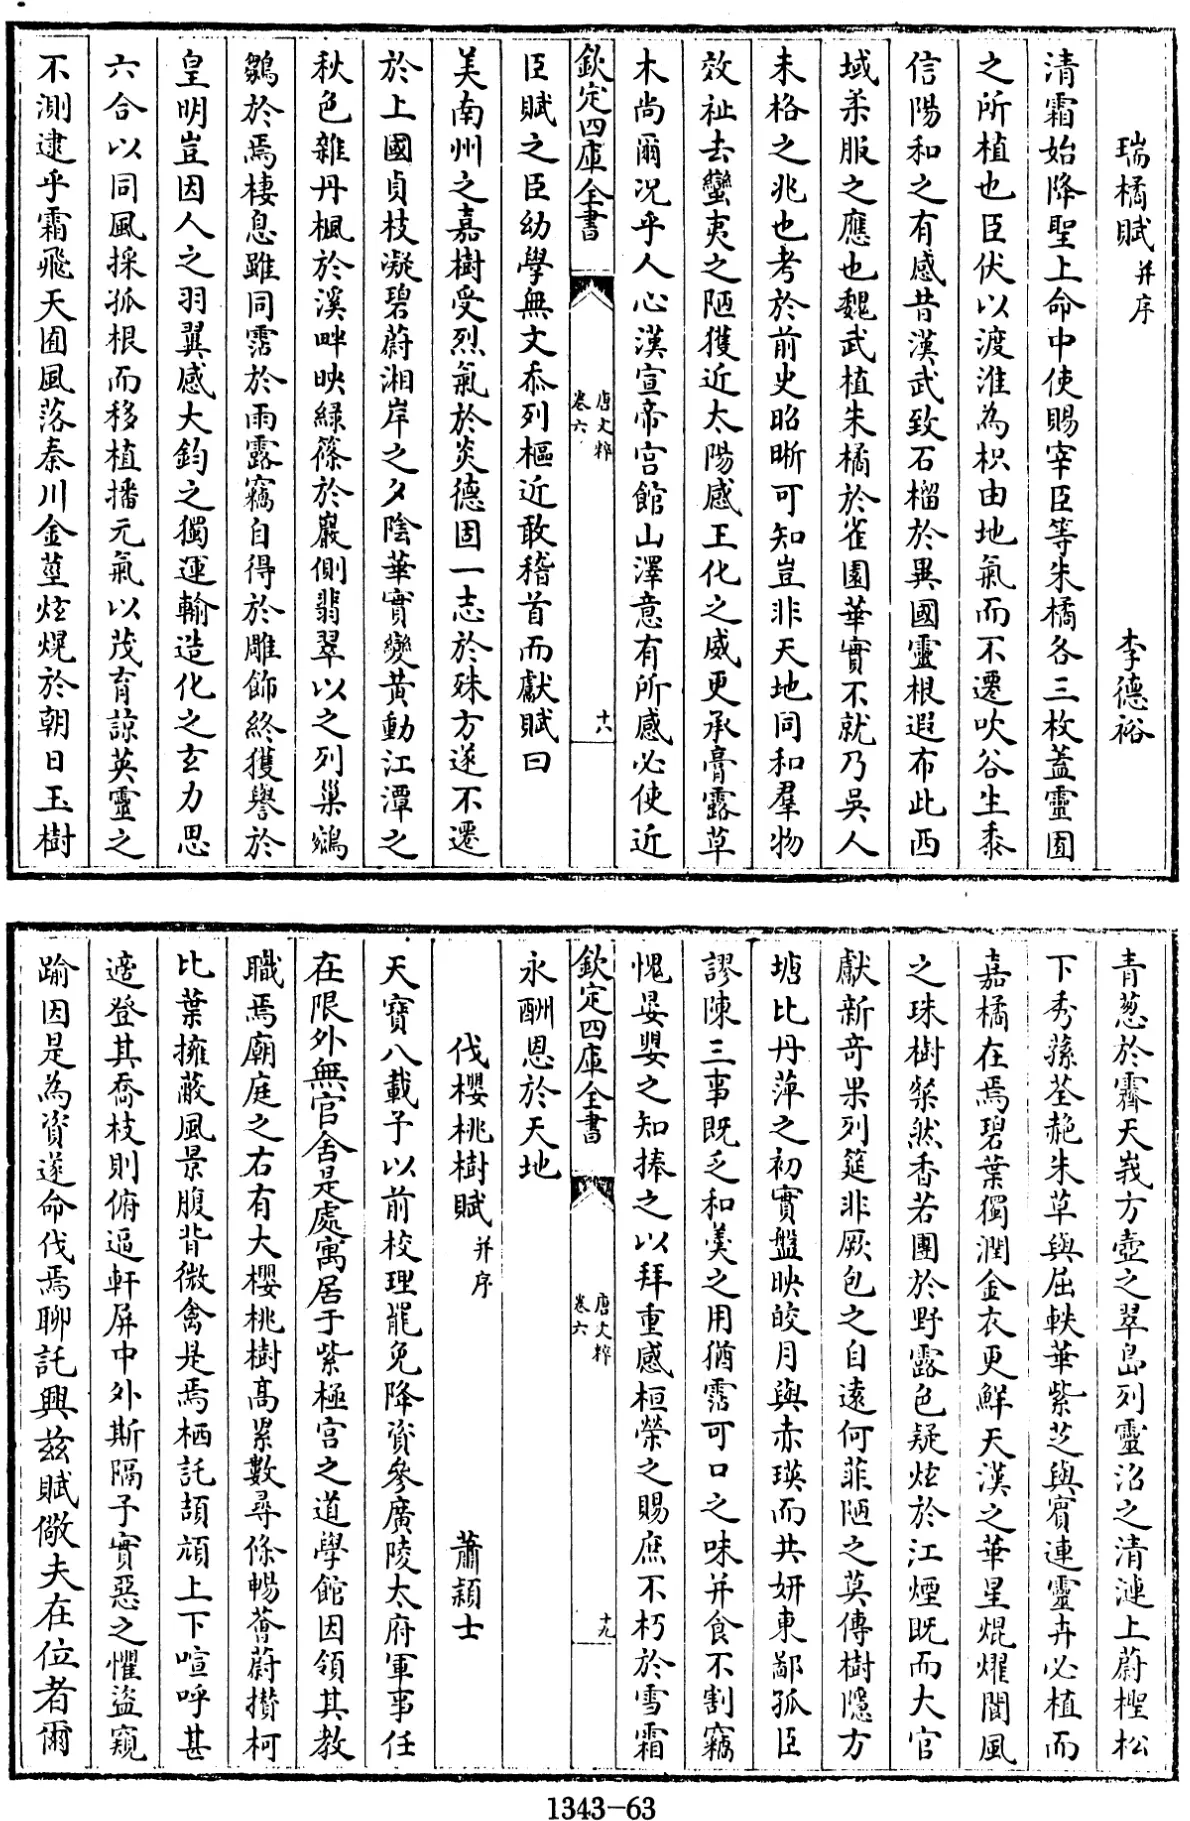 瑞橘賦并序 李德裕
清霜始降聖上命中使賜宰臣等朱橘各三枚蓋靈囿
之所植也臣伏以渡淮為枳由地氣而不遷吹谷生黍
信陽和之有感昔漢武致石榴於異國靈根遐布此西
域柔服之應也魏武植朱橘於雀園華實不就乃吳人
未格之兆也考於前史昭晰可知豈非天地同和羣物
效祉去蠻夷之陋獲近太陽感王化之威更承膏露草
木尚爾況乎人心漢宣帝宮館山澤意有所感必使近
欽定四庫全書 唐文粹 卷六 十八
臣賦之臣幼學無文忝列樞近敢稽首而獻賦曰
美南州之嘉樹受烈氣於炎德固一志於殊方遂不遷
於上國貞枝凝碧蔚湘岸之夕陰華實變黄動江潭之
秋色雜丹楓於溪畔映緑篠於巖側翡翠以之列巢鵷
鶵於焉棲息雖同霑於雨露竊自得於雕飾終獲譽於
皇明豈因人之羽翼感大鈞之獨運輸造化之玄力思
六合以同風採孤根而移植播元氣以茂育諒英靈之
不測逮乎霜飛天囿風落秦川金莖炫熀於朝日玉樹
青葱於霽天峩方壺之翠島列靈沼之清漣上蔚檉松
下秀蓀荃赩朱草與屈軼華紫芝與賓連靈卉必植而
嘉橘在焉碧葉獨潤金衣更鮮天漢之華星焜燿閬風
之珠樹粲然香若團於野露色疑炫於江煙既而大官
獻新奇果列筵非厥包之自遠何菲陋之莫傳樹隱方
塘比丹萍之初實盤映皎月與赤瑛而共妍東鄙孤臣
謬陳三事既乏和羮之用猶霑可口之味并食不割竊
愧晏嬰之知捧之以拜重感桓榮之賜庶不朽於雪霜
欽定四庫全書 唐文粹 卷六 十九
永酬恩於天地
伐櫻桃樹賦并序 蕭潁士
天寶八載予以前校理罷免降資參廣陵太府軍事任
在限外無官舍是處寓居于紫極宮之道學館因領其教
職焉廟庭之右有大櫻桃樹髙累數尋條暢薈蔚攅柯
比葉擁蔽風景腹背微禽是焉栖託頡頏上下喧呼甚
適登其喬枝則俯逼軒屏中外斯隔予實惡之懼盜窺
踰因是為資遂命伐焉聊託興兹賦儆夫在位者爾
1343-63